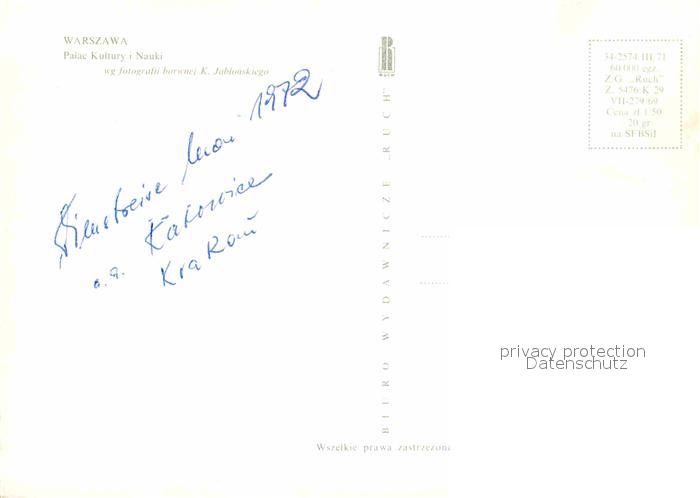 WARSZAWA
Pałac Kultury i Nauki
wg fotografii barwnej K. Jabłońskiego
Dienstreise Mai 1972
u. a. Katowice
Krakau
BIURO WYDAWNICZE „RUCH"
34-2574 III 71
60.000 egz.
Z.G. „Ruch"
Z. 5476 K 29
VII-279/69
Cena zł 1.50
20 gr
na SFBSiI
privacy protection
Datenschutz
Wszelkie prawa zastrzeżone